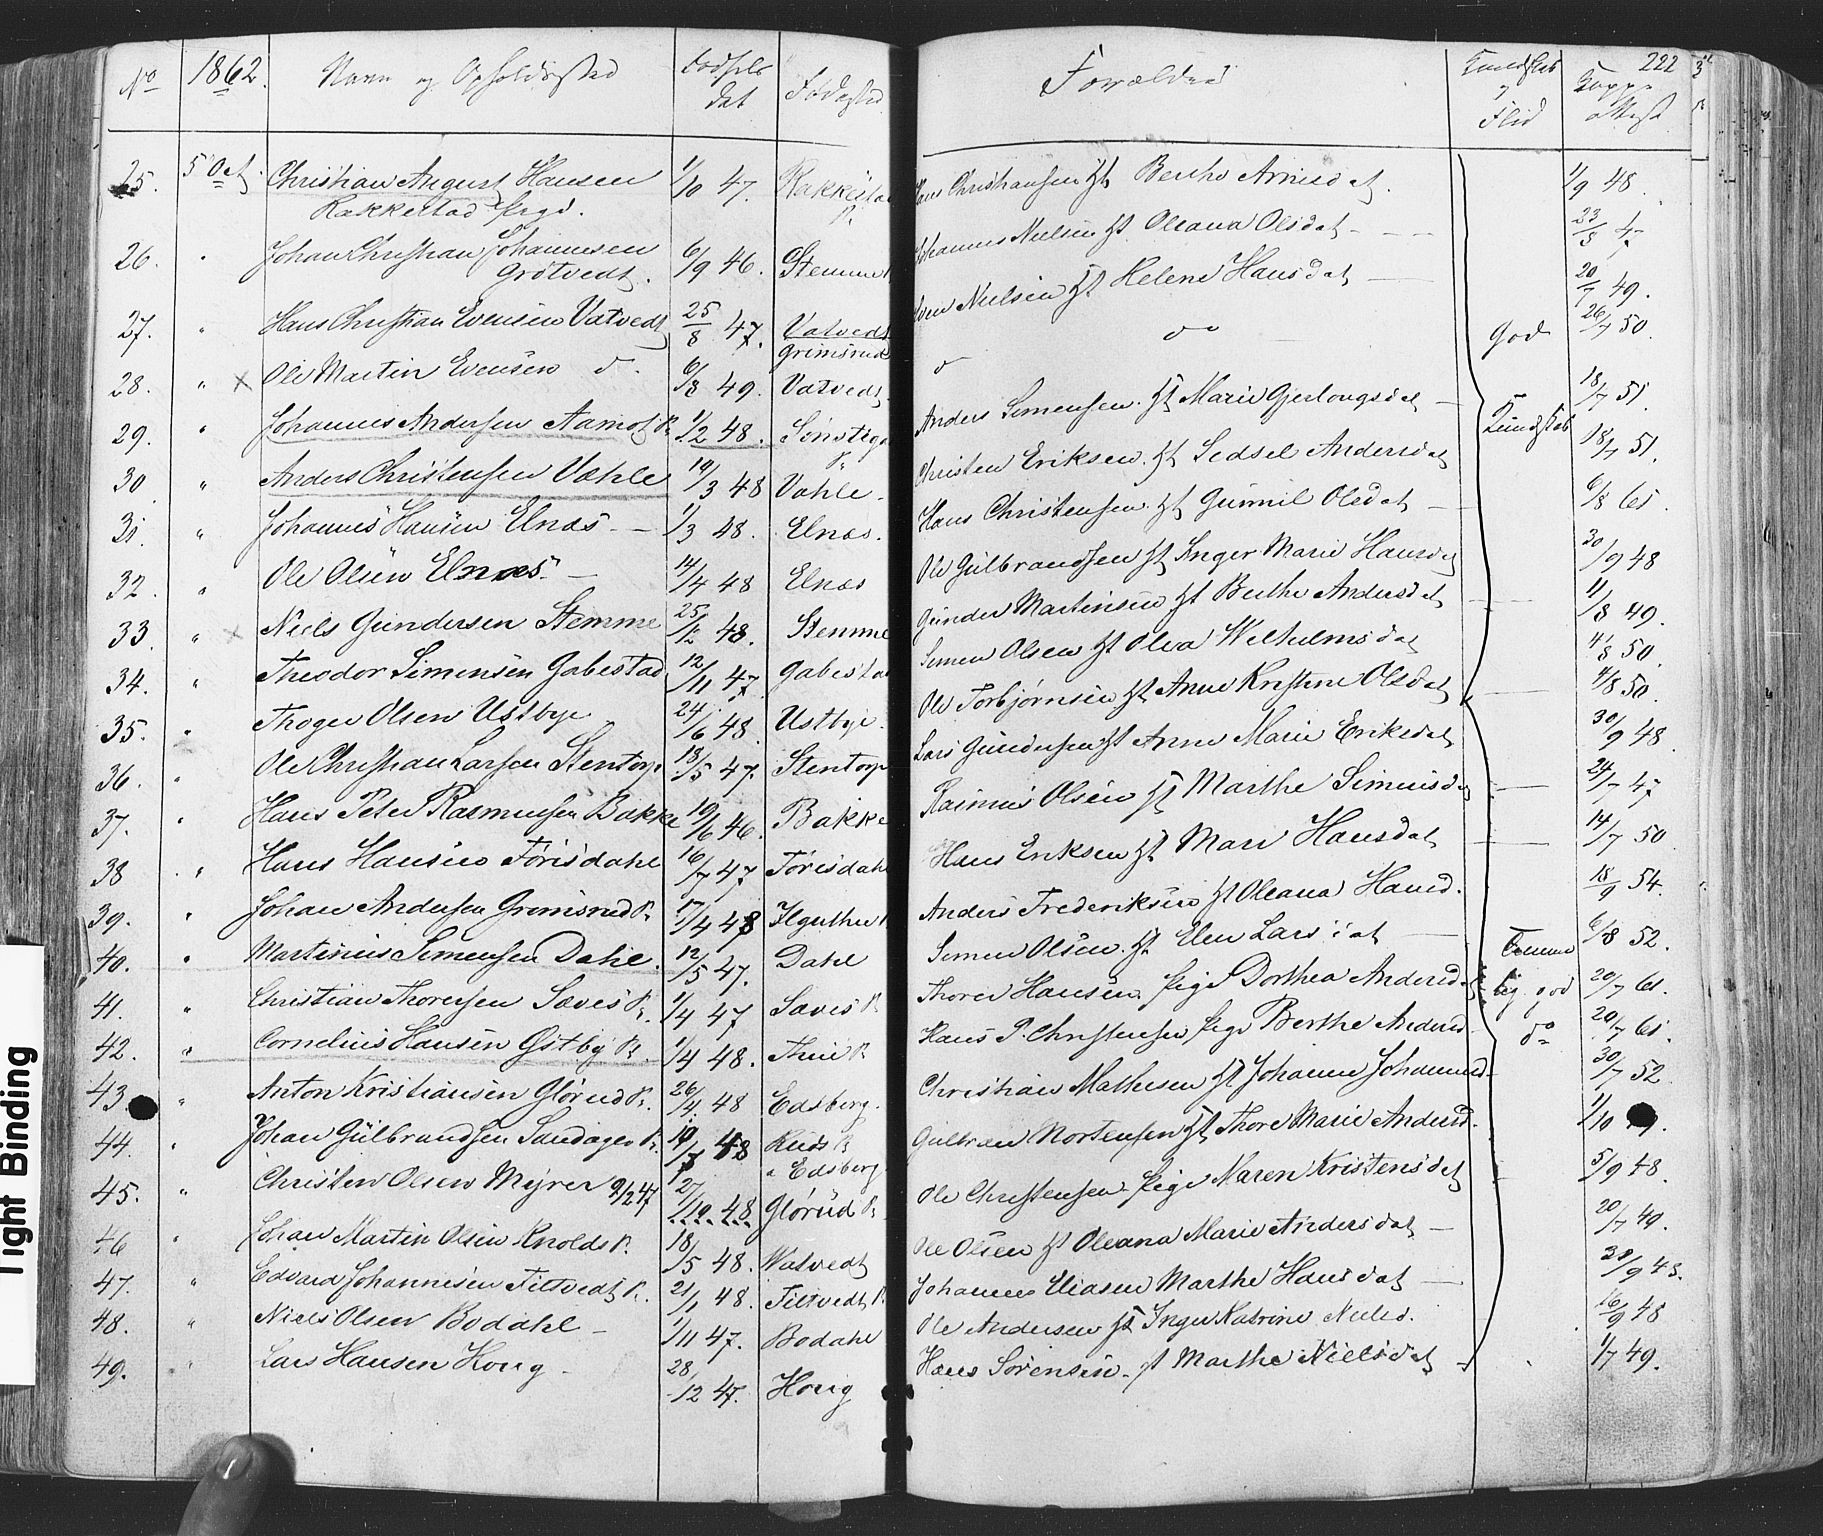 No 1862 Navn og Opholdssted Fødsels dat Fødested
25. 5 Oct. Christian August Hansen 1/10 47. Rakkestad
Rakkestad Prgd. P.
26. " Johan Christian Johannesen 6/9 46. Stemme
Grötvedt.
27. " Hans Christian Evensen Vatvedt 25/8 47. Vatvedt
Grimsrud
28. " x Ole Martin Evensen d. 6/8 49. Vatvedt
29. " Johannes Andersen Aamot P. 1/2 48.
P.
30 " Anders Christensen Vahle 14/3 48 Vahle.
31. " Johannes Hansen Elnæs. 1/3 48. Elnæs.
32. " Ole Olsen Elnæs. 14/4 48 Elnæs
33. " x Niels Gundersen Stemme 25/12 48. Stemme
34. " Theodor Simensen Gabestad 12/11 47. Gabestad
35. " Olsen Ustbye 24/6 48. Ustbye.
36. " Ole Christian Larsen Stentorp 18/5 47. Stentorp
37. " Hans Peter Rasmussen Bakke 19/6 46. Bakke
38 " Hans Hansen Torisdahl 16/7 47 Torisdahl
39. " Johan Andersen Grimsrud P. 17/4 48
40. " Martinius Simensen Dahl. 12/5 47. Dahl
41. " Christian Thoresen Saves P. 1/4 47 Saves P.
42. " Cornelius Hansen Östby P. 1/4 48. P.
43. " Anton Kristiansen Glörud P. 26/4. 48 Edsberg.
44. " Johan Gulbrandsen P. 48
Edsberg
45. " Christen Olsen Myrer 9/2 47 27/10. 48. Glörud P.
46 " Johan Martin Olsen P. 18/5 48. Watvedt
47. " Edvard Johannesen Filtvedt P. 21/1 48. Filtvedt P.
48. " Niels Olsen Bodahl 1/11 47. Bodahl
49. " Lars Hansen Houg 28/12 47. Houg
Forældre Kundskab & Flid Koppe attest 222
Hans Christiansen Berthe 1/9 48.
Johannes Nielsen Oleana Olsdat 23/
Even Nielsen Helene Hansdat 20/7 49.
do God 26/7 50.
Anders Simensen. Marie Gjerlougsdat 18/7 51.
Christen Eriksen. Sedsel Andersdat Kundskab 18/7 51.
Hans Christensen. Gunnil Olsdat 6/8 61.
Ole Gulbrandsen Inger Marie Hansdat 30/9 48
Gunder Martinsen Berthe Andersdat 49.
Simen Olsen Olea Wilhelmsdat 50.
Ole Torbjørnsen Anne Kristine Olsdat 50.
Lars Gundersen Anne Marie Eriksdat 30/9 48
Rasmus Olsen Marthe Simensdat 24/7 47
Hans Eriksen Mari Hansdat 14/7 50
Anders Frederiksen Oleana Hansd. 18/9 54.
Simen Olsen. Elen Larsdat 6/8 52.
Thorer Hansen. Pige Dorthea Andersd. god 20/7 61.
Hans P. Christensen Pige Berthe Andersd. do 20/7 61.
Christian Mathisen Johanne Johannesd. 30/7 52
Gulbran Mortensen Thore Marie Andersd. 1/10
Ole Christensen. Pige Maren Kristensdat 5/9 48.
Ole Olsen Oleana Marie Andersdat 20/7 49.
Johannes Eliasen Marthe Hansdat
Ole Andersen Inger Katrine Nielsd. 16/9 48
Hans Sörensen. Marthe Nielsdat 1/7 49.
Tight Binding